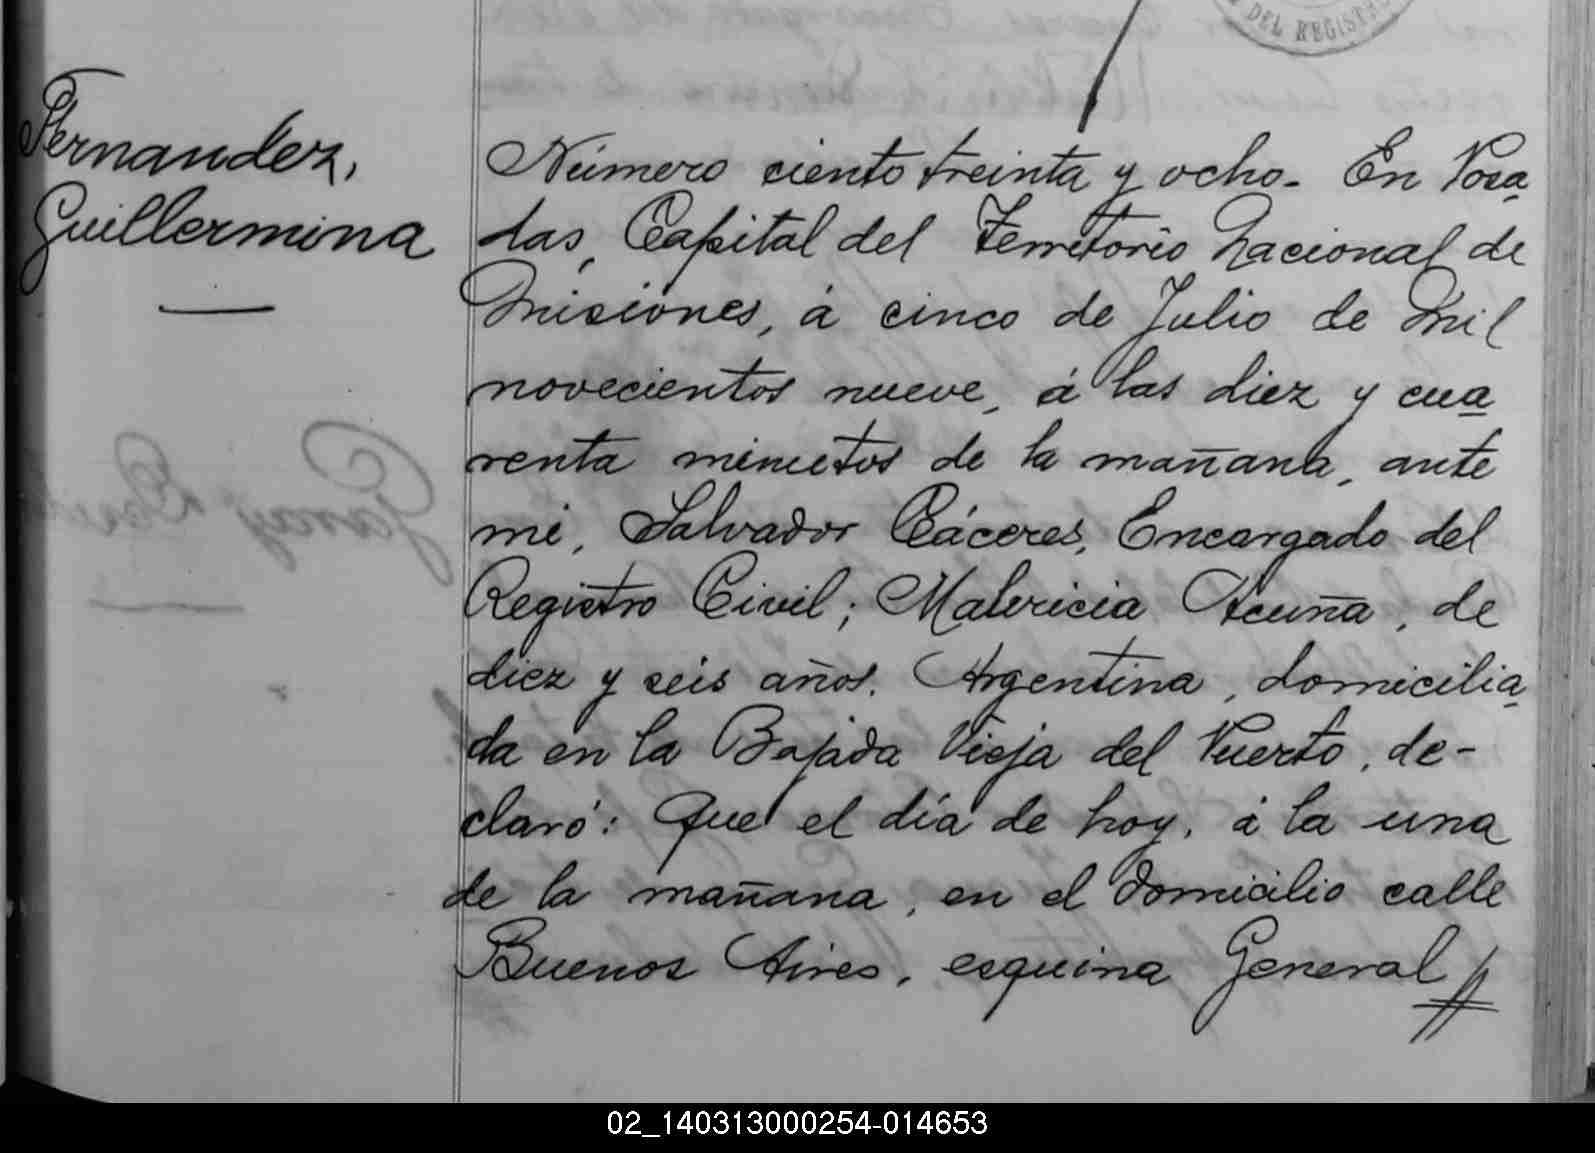 DEL REGISTR
Fernandez,
Guillermina
Número ciento treinta y ocho. En Posa
das, Capital del Territorio Nacional de
Misiones, á cinco de Julio de mil
novecientos nueve, á las diez y cua
renta minutos de la mañana, ante
mi, Salvador Cáceres, Encargado del
Registro Civil; Matricia Acuña, de
diez y seis años. Argentina, domicilia
da en la Bajada Vieja del Puerto, de-
claró: Que el día de hoy, á la una
de la mañana, en el domicilio calle
Buenos Aires, esquina General
02_140313000254-014653